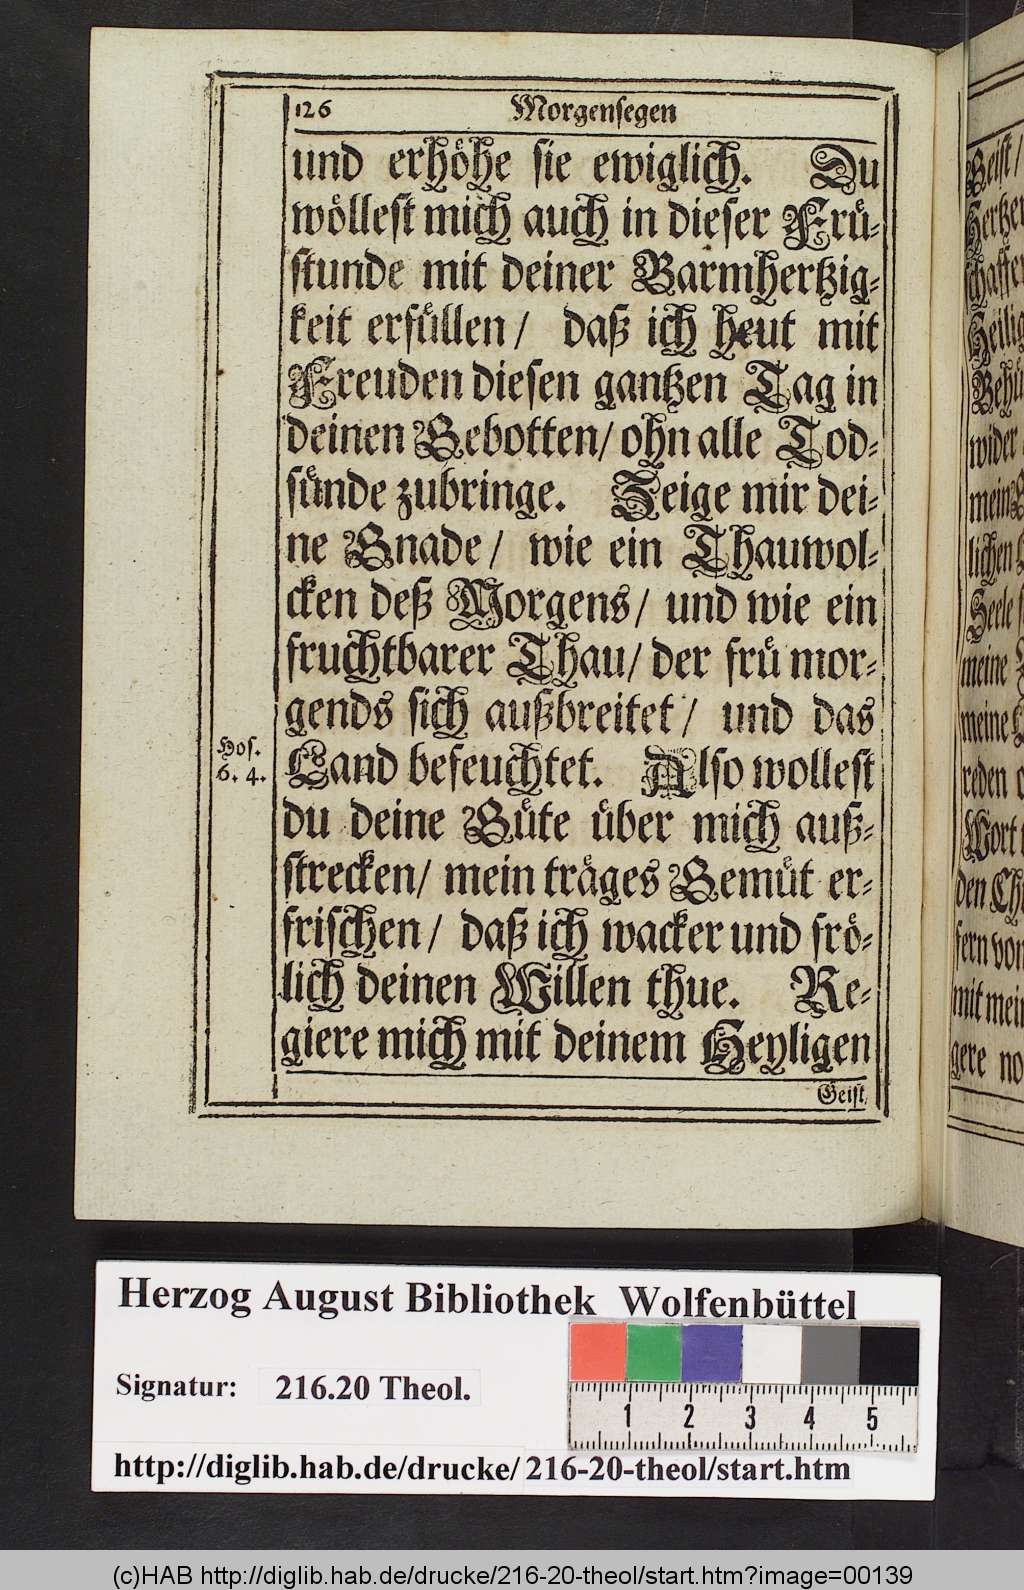 126 Morgensegen
und erhöhe sie ewiglich. Du
wöllest mich auch in dieser Frü-
stunde mit deiner Barmhertzig-
keit erfüllen/ daß ich heut mit
Freuden diesen gantzen Tag in
deinen Gebotten/ ohn alle Tod-
sünde zubringe. Zeige mir dei-
ne Gnade/ wie ein Thauwol-
cken deß Morgens/ und wie ein
fruchtbarer Thau/ der frü mor-
gends sich außbreitet/ und das
Hos.
6. 4.
Land befeuchtet. Also wollest
du deine Güte über mich auß-
strecken/ mein träges Gemüt er-
frischen/ daß ich wacker und frö-
lich deinen Willen thue. Re-
giere mich mit deinem Heyligen
Geist
Geist/
schaffe
Heilig
Behü
wider
mein
lichen
Seele
meine
meine
reden
Wort
den Ch
fern von
mit mein
gere no
Herzog August Bibliothek Wolfenbüttel
Signatur: 216.20 Theol.
1 2 3 4 5
http://diglib.hab.de/drucke/216-20-theol/start.htm
(c)HAB http://diglib.hab.de/drucke/216-20-theol/start.htm?image=00139